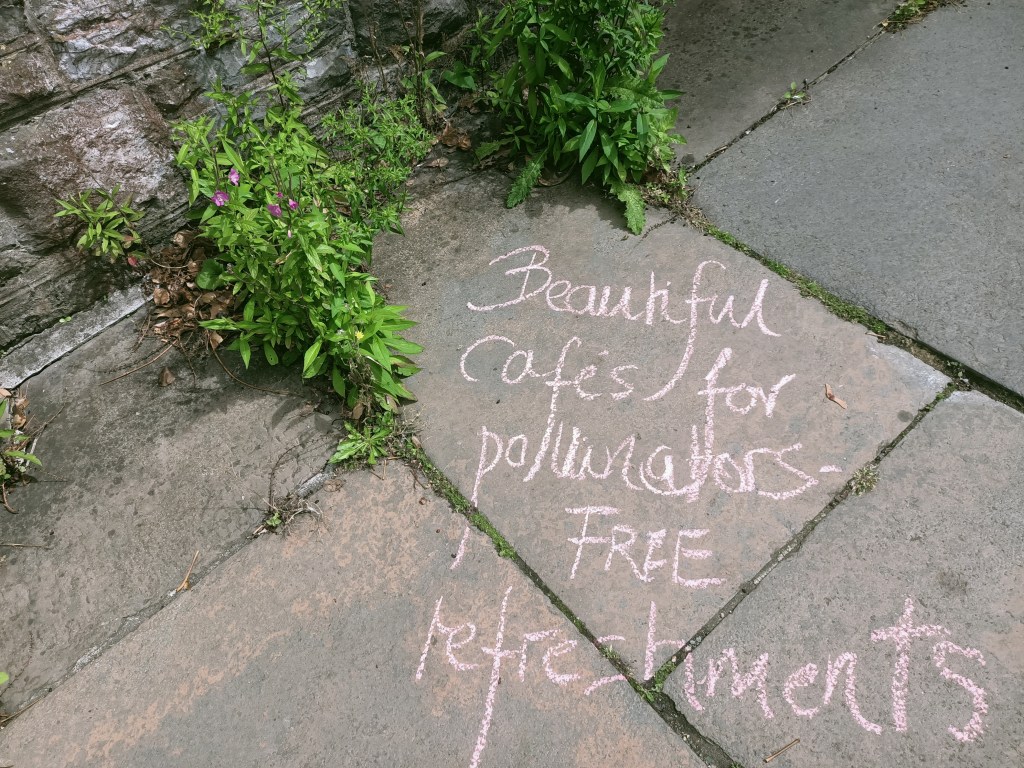 Beautiful
Cafés for
pollinators-
FREE
refreshments